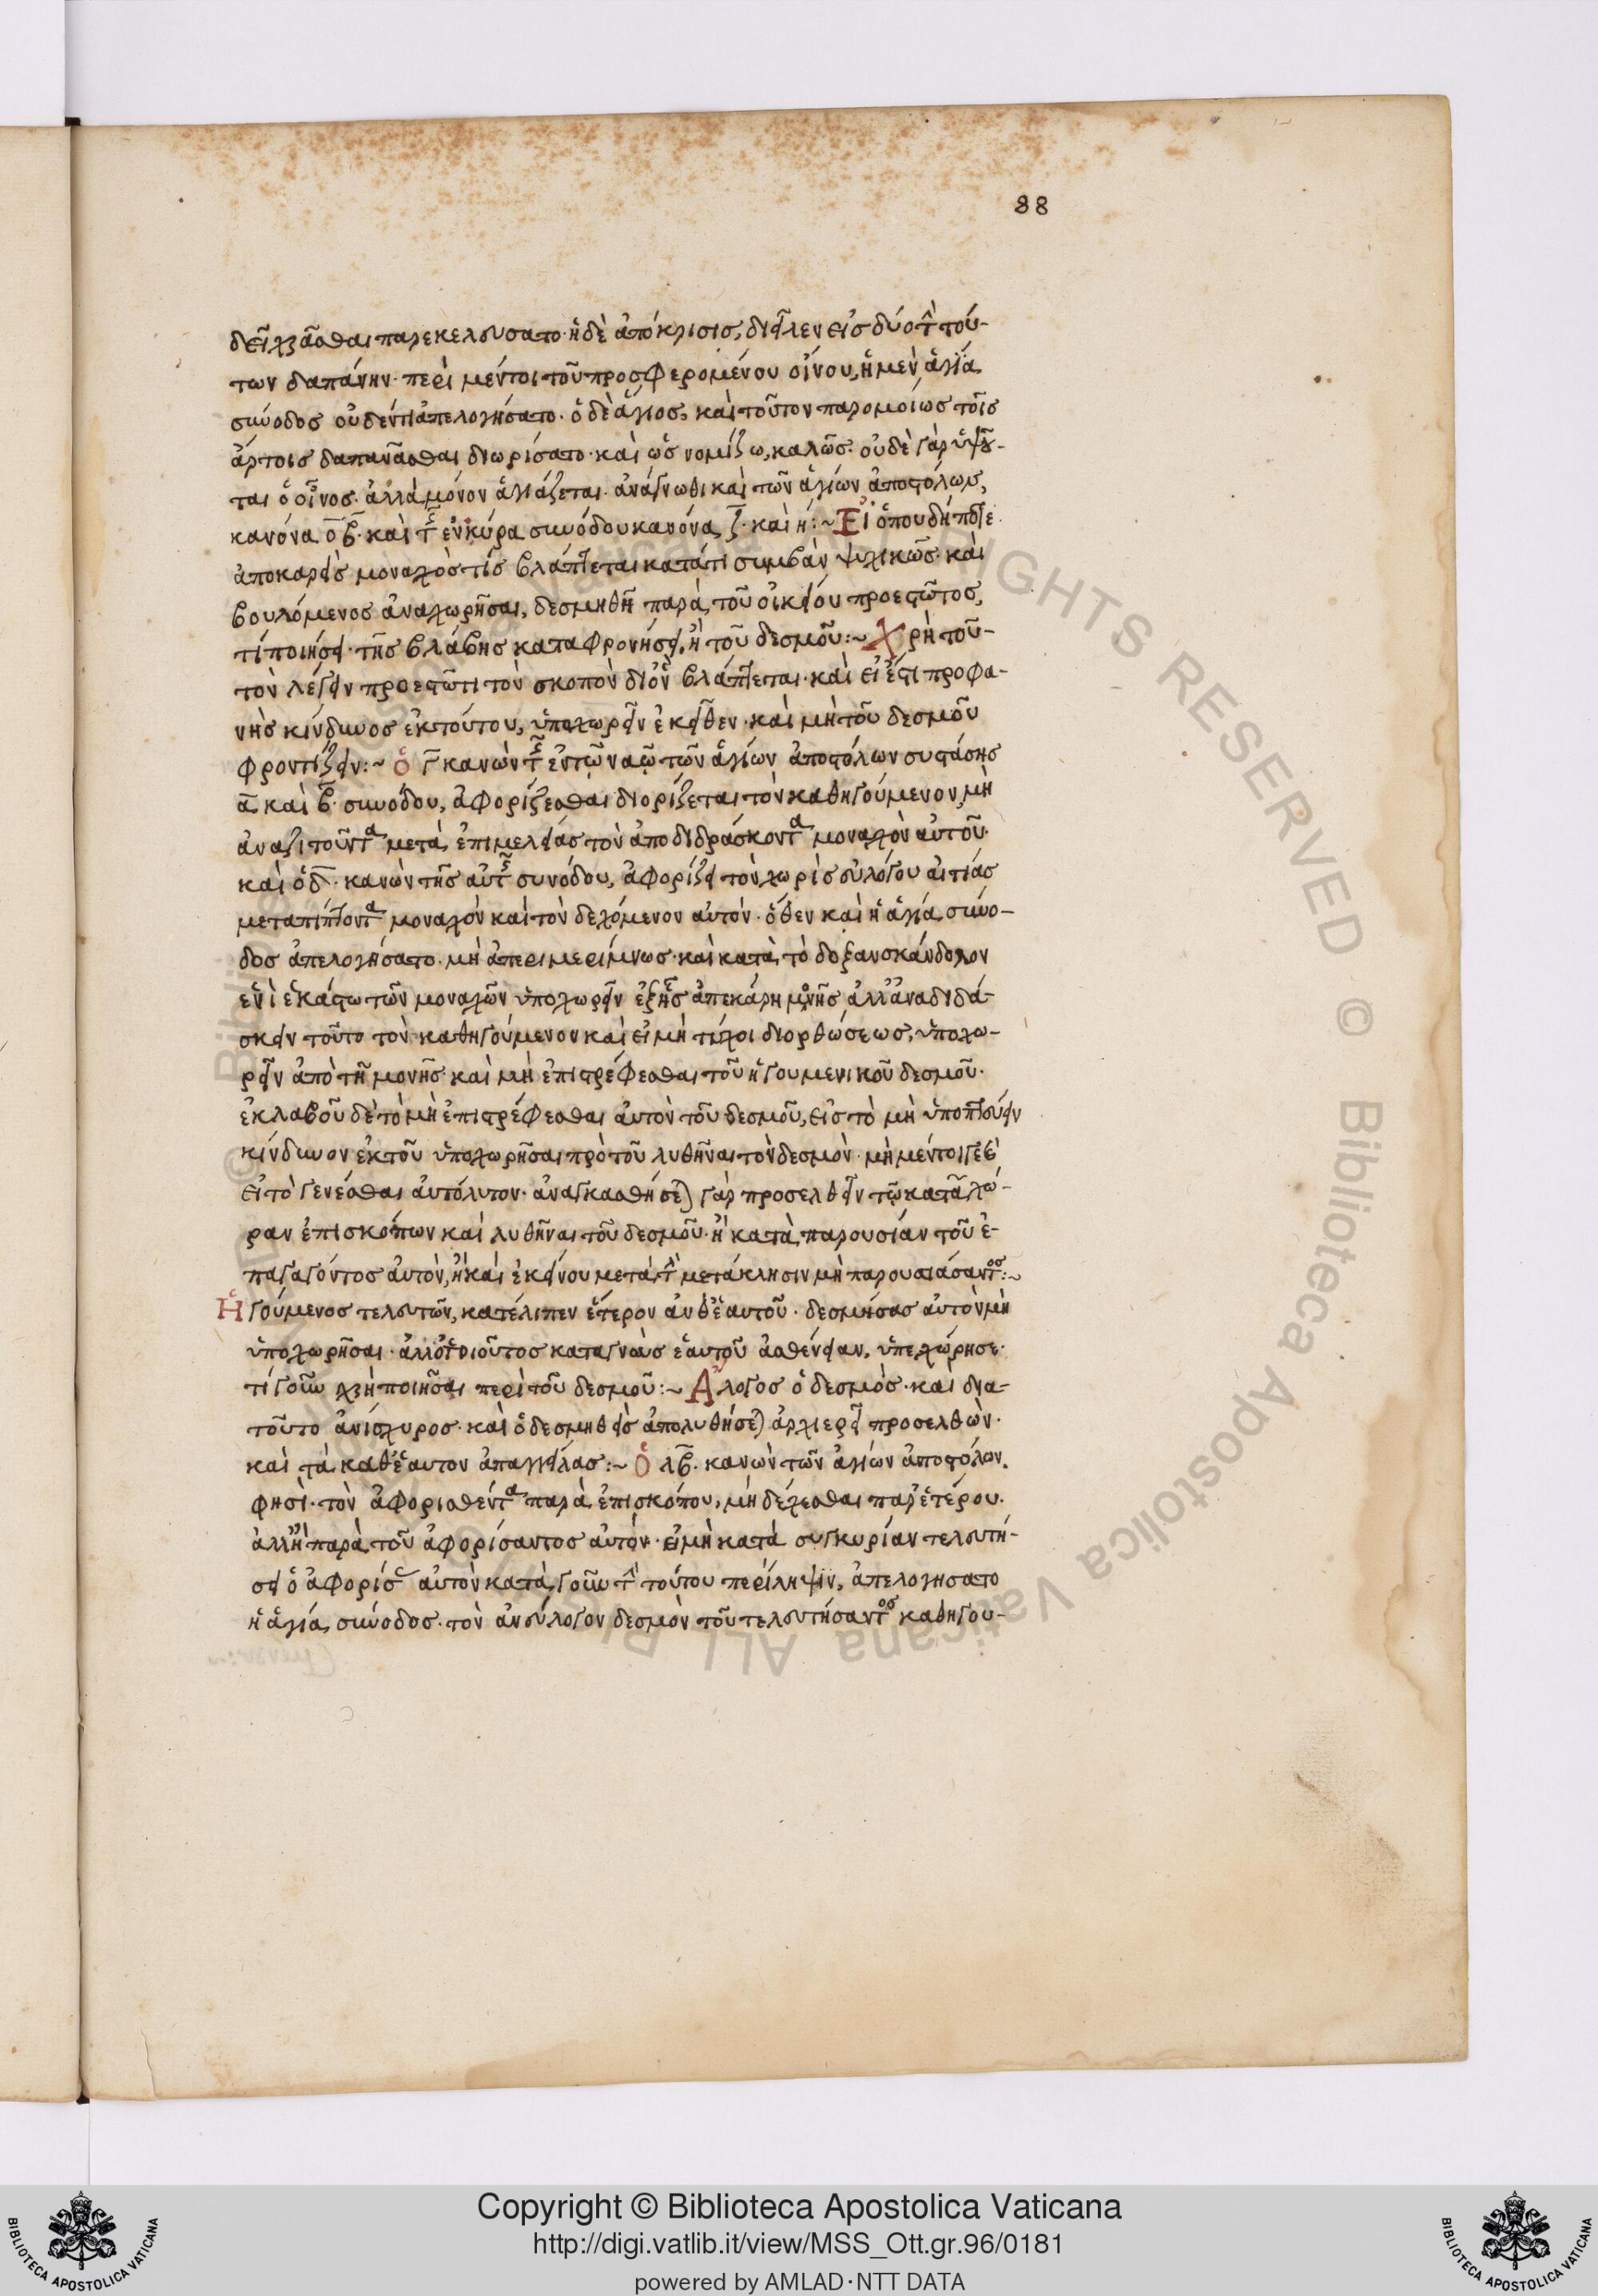 88
δεῖ χρᾶσθαι παρεκελεύσατο· ἡ δὲ ἀπόκρισις, διεῖλεν εἰς δύο τὴν τού-
των δαπάνην· περὶ μέντοι τοῦ προσφερομένου οἴνου, ἡ μὲν ἁγία
σύνοδος οὐδέν τι ἀπελογήσατο· ὁ δὲ ἅγιος, καὶ τοῦτον παρομοίως τοῖς
ἄρτοις δαπανᾶσθαι διωρίσατο· καὶ ὡς νομίζω, καλῶς· οὐδὲ γὰρ ὑψοῦ-
ται ὁ οἶνος· ἀλλὰ μόνον ἁγιάζεται· ἀνάγνωθι καὶ τῶν ἁγίων ἀποστόλων,
κανόνα ο̅β̅· καὶ τῆς ἐν κύρα συνόδου κανόνα ζ̅· καὶ η:~ Εἰ ὁπουδήποτε
ἀποκαρεὶς μοναχὸς τίς βλάπτεται κατά τι συμβὰν ψυχικῶς· καὶ
βουλόμενος ἀναχωρῆσαι, δεσμηθῆ παρὰ τοῦ οἰκείου προεστῶτος,
τί ποιήσει· τῆς βλάβης καταφρονήσει, ἢ τοῦ δεσμοῦ:~ Χρὴ τοῦ-
τὸν λέγειν προεστῶτι τὸν σκοπὸν δι' ὃν βλάπτεται· καὶ εἰ ἔστι προφα-
νὴς κίνδυνος ἐκ τούτου, ὑποχωρεῖν ἐκεῖθεν· καὶ μὴ τοῦ δεσμοῦ
φροντίζειν:~ ὁ γ̅ κανὼν τῆς ἐν τῷ ναῷ τῶν ἁγίων ἀποστόλων συστάσης
α̅ καὶ β̅ συνόδου, ἀφορίζεσθαι διορίζεται τὸν καθηγούμενον, μὴ
ἀναζιτοῦντα μετὰ ἐπιμελείας τὸν ἀποδιδράσκοντα μοναχὸν αὐτοῦ·
καὶ ὁ δ̅· κανὼν τῆς αὐτῆς συνόδου, ἀφορίζει τὸν χωρὶς εὐλόγου αἰτίας
μεταπίπτοντα μοναχὸν καὶ τὸν δεχόμενον αὐτόν· ὅθεν καὶ ἡ ἁγία σύνο-
δος ἀπελογήσατο· μὴ ἀπεριμερίμνως· καὶ κατὰ τὸ δόξαν σκάνδαλον
ἑνὶ ἑκάστω τῶν μοναχῶν ὑποχωρεῖν ἐξ ἧς ἀπεκάρη μονῆς ἀλλ' ἀναδιδά-
σκειν τοῦτο τὸν καθηγούμενον καὶ εἰ μὴ τύχοι διορθώσεως, ὑποχω-
ρεῖν ἀπὸ τῆ μονῆς· καὶ μὴ ἐπιστρέφεσθαι τοῦ ἡγουμενικοῦ δεσμοῦ·
ἐκλαβοῦ δὲ τὸ μὴ ἐπιστρέφεσθαι αὐτὸν τοῦ δεσμοῦ, εἰς τὸ μὴ ὑποπτεύειν
κίνδυνον ἐκ τοῦ ὑποχωρῆσαι πρὸ τοῦ λυθῆναι τὸν δεσμὸν· μὴ μέντοι γε
εἰ τὸ γενέσθαι αὐτόλυτον· ἀναγκασθήσεται γὰρ προσελθεῖν τῷ κατὰ χώ-
ραν ἐπισκόπων καὶ λυθῆναι τοῦ δεσμοῦ· ἢ κατὰ παρουσίαν τοῦ ἐ-
παγαγόντος αὐτὸν, ἢ καὶ ἐκείνου μετὰ τὴν μετάκλησιν μὴ παρουσιάσαντος:~
Ἡγούμενος τελευτῶν, κατέλιπεν ἕτερον ἀνθ' ἑαυτοῦ· δεσμήσας αὐτὸν μὴ
ὑποχωρῆσαι· ἀλλ' ὁ τοιοῦτος καταγνοὺς ἑαυτοῦ ἀσθένειαν, ὑπεχώρησε·
τί γοῦν χρὴ ποιῆσαι περὶ τοῦ δεσμοῦ:~ Ἄλογος ὁ δεσμὸς· καὶ δια-
τοῦτο ἀνίσχυρος· καὶ ὁ δεσμηθεὶς ἀπολυθήσεται ἀρχιερεῖ προσελθὼν·
καὶ τὰ καθ' ἑαυτον ἀπαγγείλας:~ Ὁ λ̅β̅· κανὼν τῶν ἁγίων ἀποστόλων
φησὶ· τὸν ἀφορισθέντα παρὰ ἐπισκόπου, μὴ δέχεσθαι παρ' ἑτέρου·
ἀλλ' ἢ παρὰ τοῦ ἀφορίσαντος αὐτόν· εἰ μὴ κατὰ συγκυρίαν τελευτή-
σει ὁ ἀφορίσας αὐτὸν κατὰ γοῦν τὴν τούτου περίληψιν, ἀπελογήσατο
ἡ ἁγία σύνοδος· τὸν ἀνεύλογον δεσμὸν τοῦ τελευτήσαντος καθηγου-
Copyright © Biblioteca Apostolica Vaticana
http://digi.vatlib.it/view/MSS_Ott.gr.96/0181
powered by AMLAD·NTT DATA